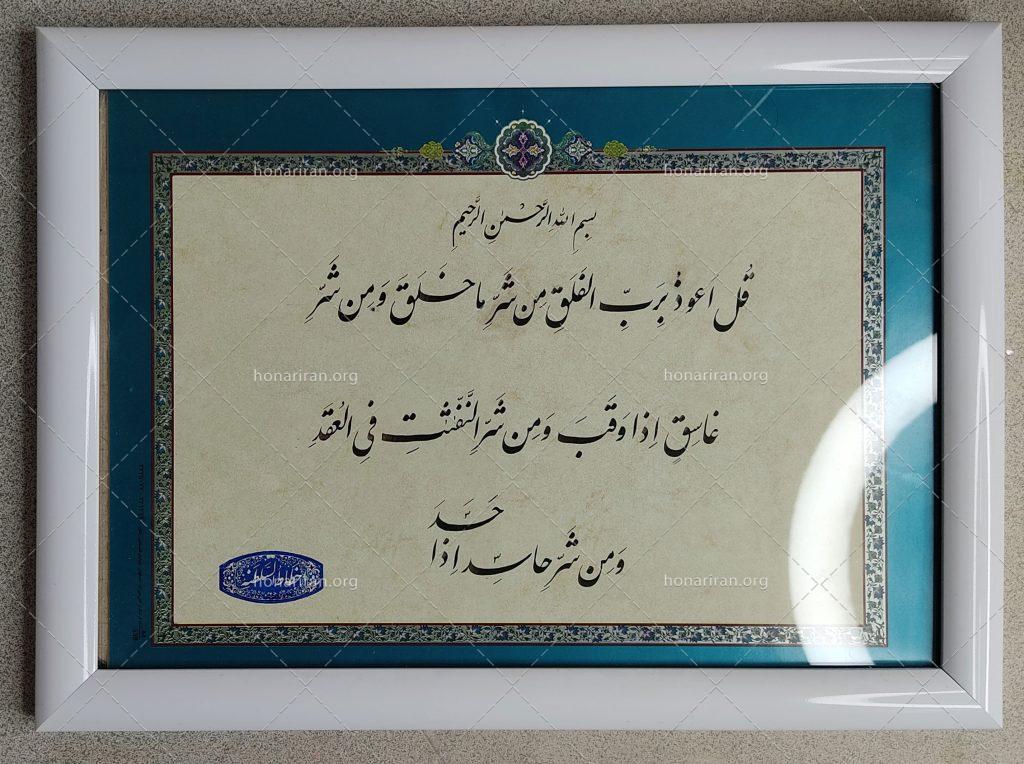 بسم الله الرحمن الرحیم
قُل اَعوذُ بِرَبِّ الفَلَقِ مِن شَرِّ ما خَلَقَ وَمِن شَرِّ
غاسِقٍ اِذا وَقَبَ وَمِن شَرِّ النَّفّٰثٰتِ فِی العُقَدِ
وَمِن شَرِّ حاسِدٍ اِذا حَسَدَ
honariran.org honariran.org
honariran.org honariran.org
honariran.org honariran.org